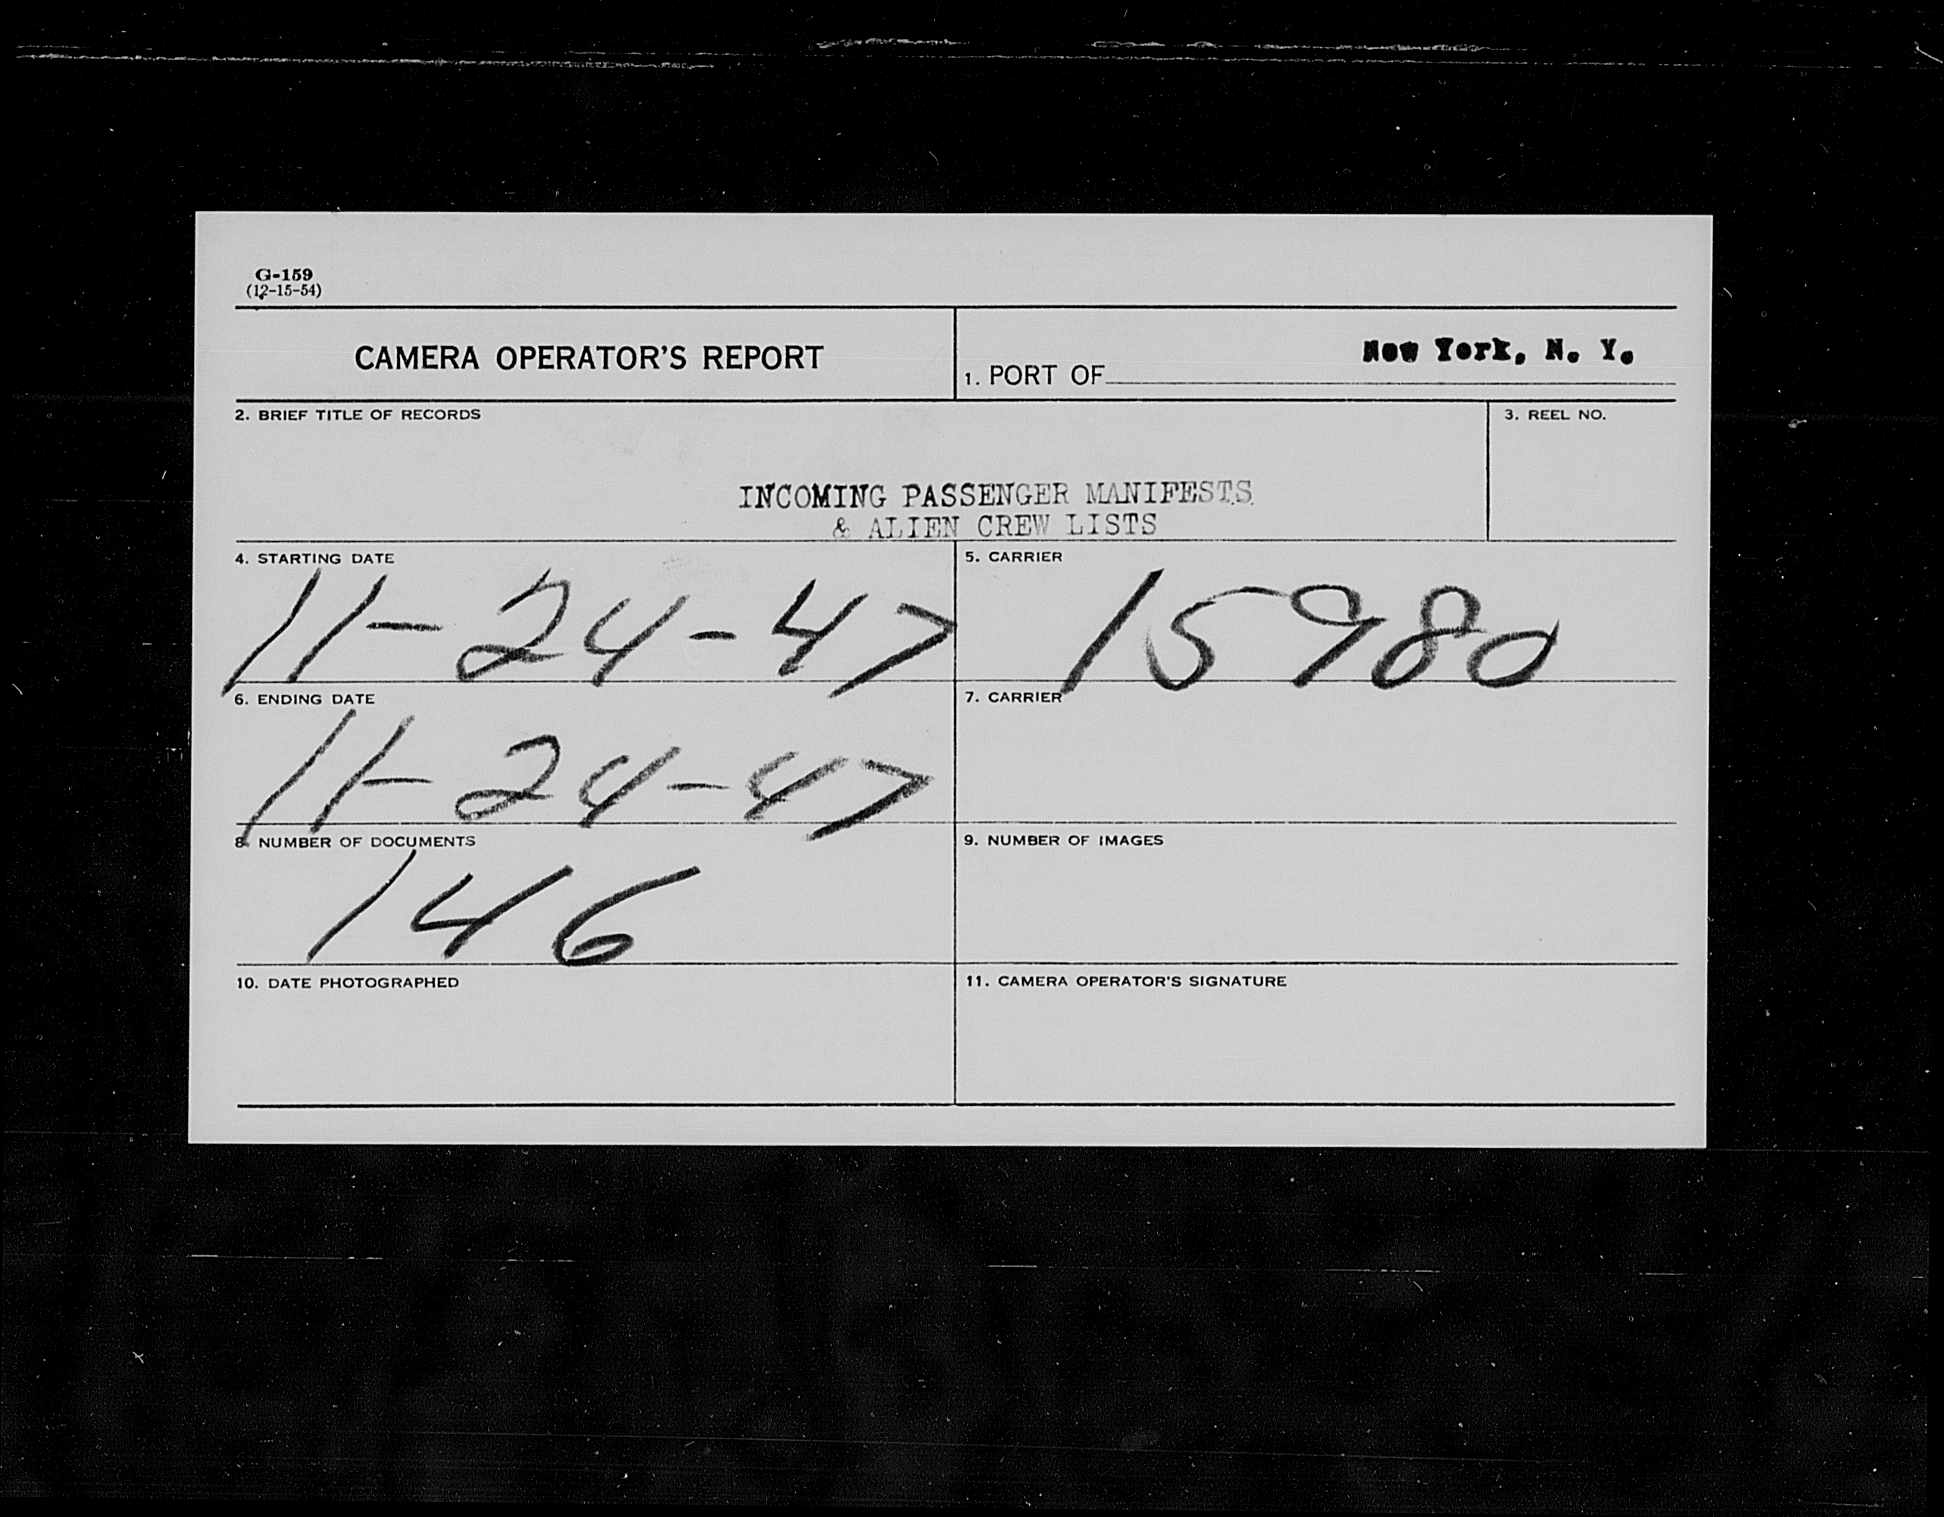 G-159
(12-15-54)
CAMERA OPERATOR'S REPORT
1. PORT OF New York, N. Y.
2. BRIEF TITLE OF RECORDS
3. REEL NO.
INCOMING PASSENGER MANIFESTS
& ALIEN CREW LISTS
4. STARTING DATE
11-24-47
5. CARRIER
15980
6. ENDING DATE
11-24-47
7. CARRIER
8. NUMBER OF DOCUMENTS
146
9. NUMBER OF IMAGES
10. DATE PHOTOGRAPHED
11. CAMERA OPERATOR'S SIGNATURE